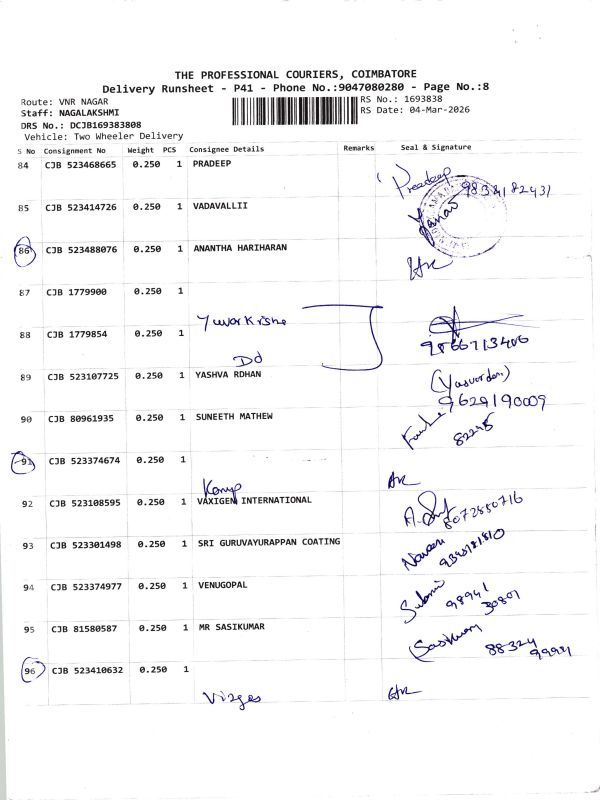 THE PROFESSIONAL COURIERS, COIMBATORE
Delivery Runsheet - P41 - Phone No.:9047080280 - Page No.:8
Route: VNR NAGAR
RS No.: 1693838
Staff: NAGALAKSHMI
RS Date: 04-Mar-2026
DRS No.: DCJB169383808
Vehicle: Two Wheeler Delivery
S No Consignment No Weight PCS Consignee Details Remarks Seal & Signature
84 CJB 523468665 0.250 1 PRADEEP
Pradeep 9834182431
85 CJB 523414726 0.250 1 VADAVALLII
86 CJB 523488076 0.250 1 ANANTHA HARIHARAN
87 CJB 1779900 0.250 1
Yuvarkrishe
88 CJB 1779854 0.250 1
9866713406
Do
89 CJB 523107725 0.250 1 YASHVA RDHAN
(Yasvardan)
9629190009
90 CJB 80961935 0.250 1 SUNEETH MATHEW
82245
91 CJB 523374674 0.250 1
Kamp
92 CJB 523108595 0.250 1 VAXIGEN INTERNATIONAL
8072850716
93 CJB 523301498 0.250 1 SRI GURUVAYURAPPAN COATING
Naveen
94 CJB 523374977 0.250 1 VENUGOPAL
98941
30801
95 CJB 81580587 1 MR SASIKUMAR
Sasikumar
88324
96 CJB 523410632 0.250 1